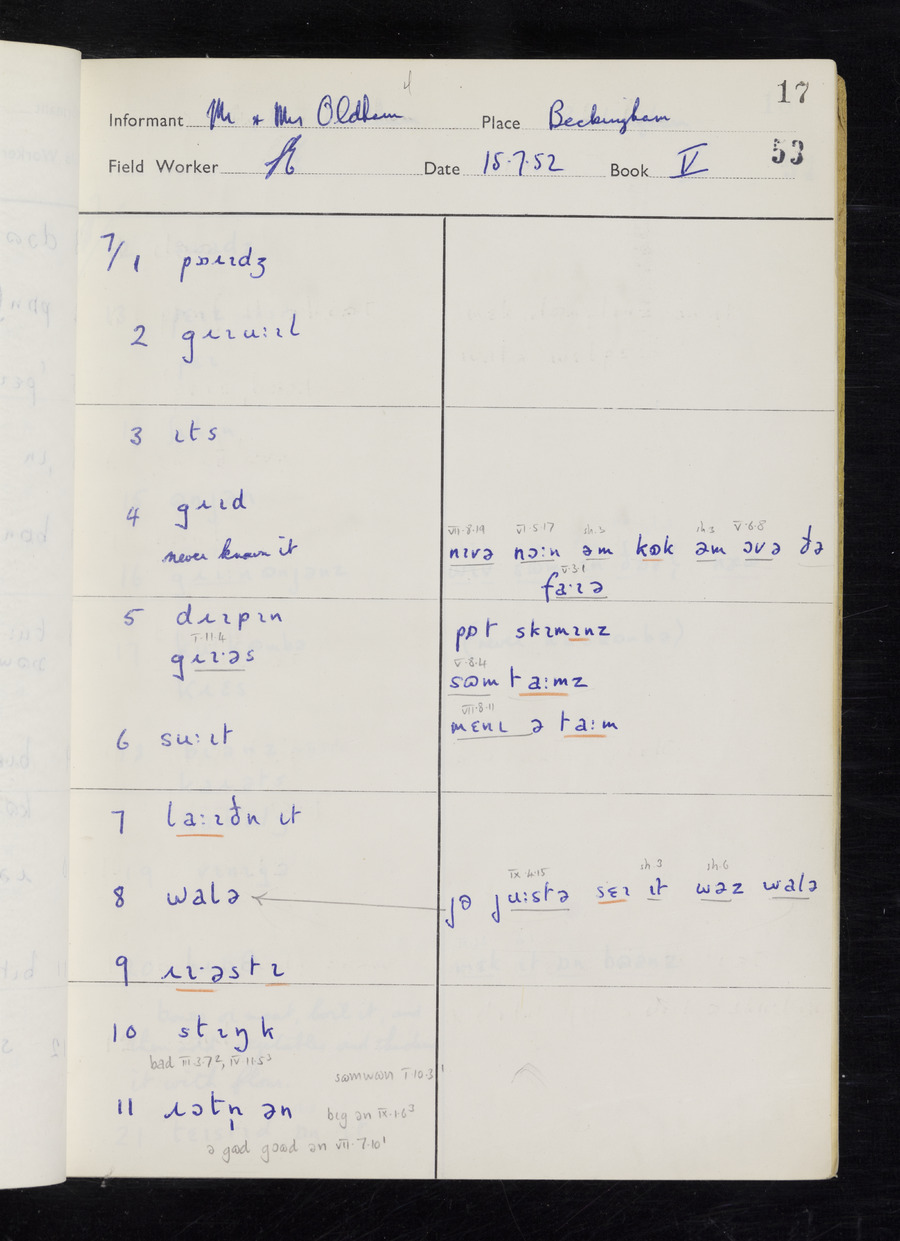 17
Informant Mr + Mrs Oldham Place Beckingham
53
Field Worker Date 15.7.52 Book V
7/1 pɒɹɪdʒ
2 gɹɪuːɪl
3 ɪts
4 gɹɪd
never known it
VII.8.19 VI.5.17 sh.3 sh.3 V.6.8
nɪvə nɔːn əm kɷk əm ɔvə ðə
V.3.1
faːɪə
5 dɹɪpɪn
I.11.4
gɹɪ·əs
pɒt skɪmɪnz
V.8.4
sɷmtaːmz
VII.8.11
mɛnɪ ə taːm
6 suːɪt
7 laːɪðn ɪt
8 walə
IX.4.15 sh.3 sh.6
jə juːstə sɛɪ ɪt wəz walə
9 ɹɪ·əstɪ
10 stɪŋk
bad III.3.7², IV.11.5³
sɷmwɷn I.10.3¹
11 ɹɔtn̩ ən
bɪg ən IX.1.6³
ə gɷd gɷɷd ən VII.7.10¹